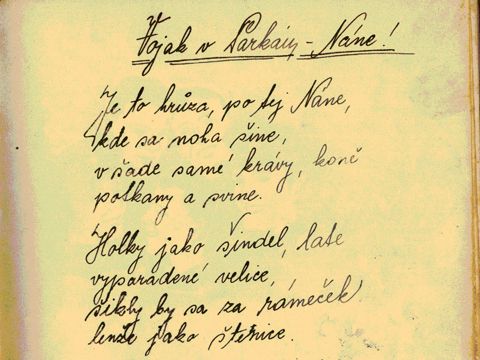 Vojak v Parkáň - Náne!
Je to hrůza, po tej Náne,
kde sa noha šine,
v šade samé krávy, koně
potkany a svine.
Holky jako šindel, late
vyparadené velice,
šikly by sa za rámeček
lenže jako štenice.